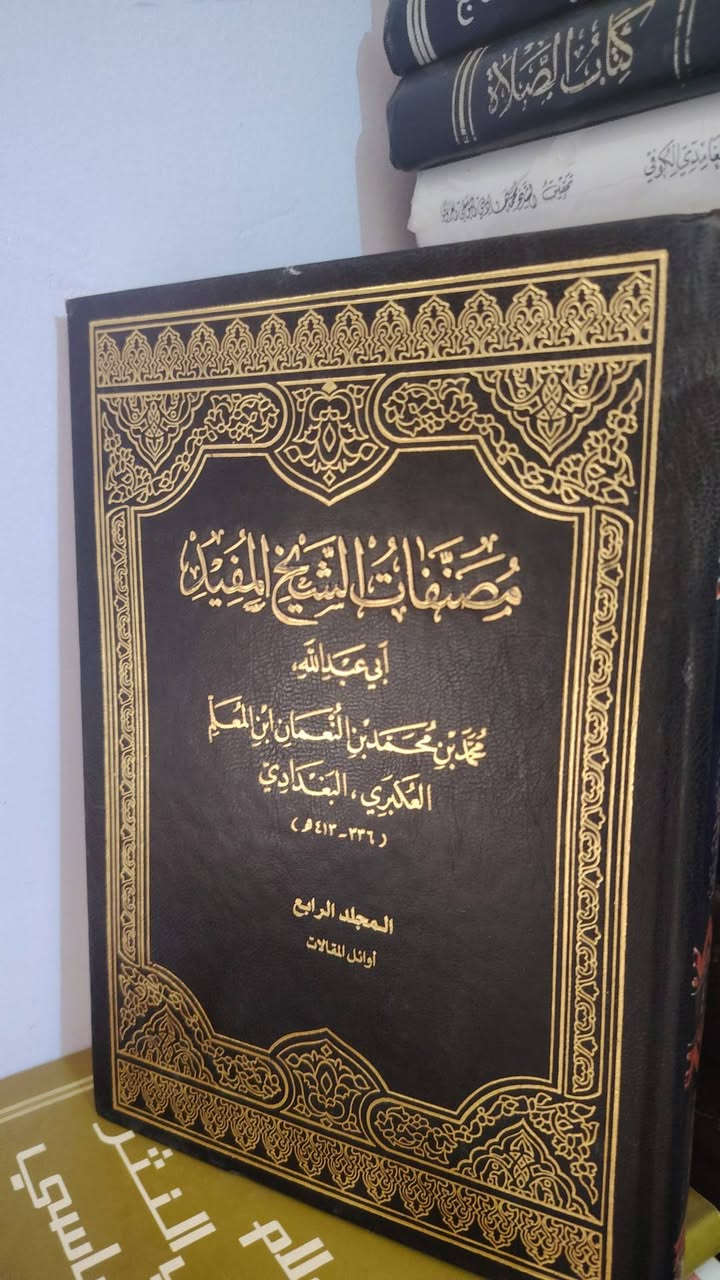 كتاب الصلاة
مصنفات الشيخ المفيد
أبي عبد الله،
محمد بن محمد بن النعمان ابن المعلم
العكبري، البغدادي
(٣٣٦-٤١٣ه)
المجلد الرابع
أوائل المقالات
النثر